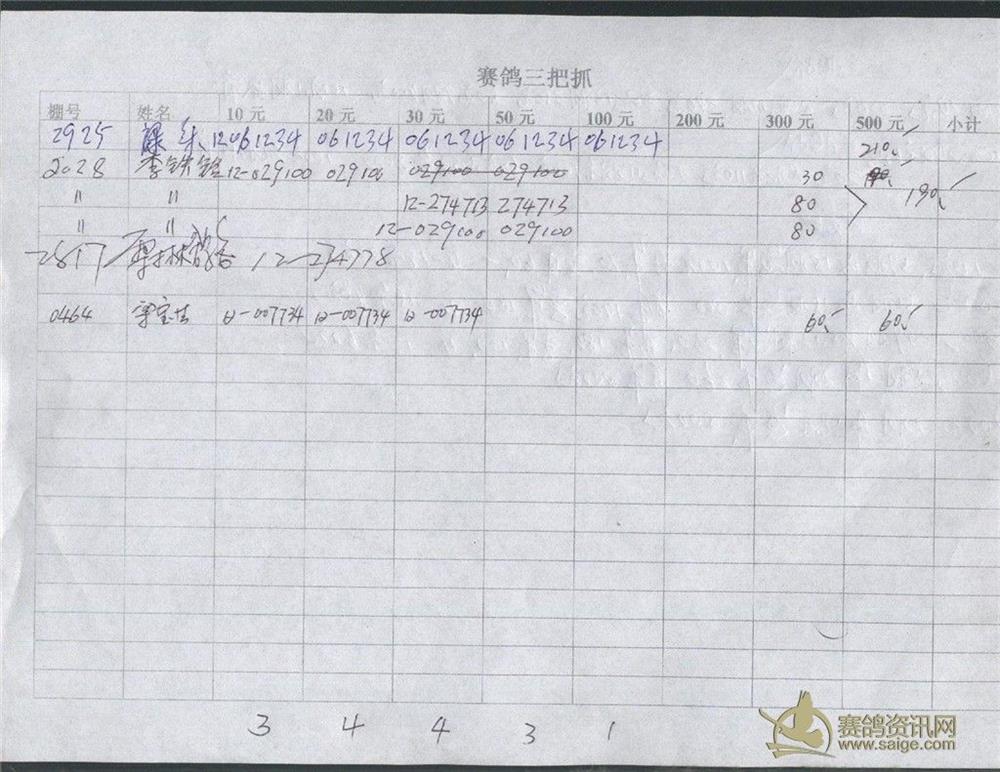 赛鸽三把抓
棚号 姓名 10 元 20 元 30 元 50 元 100 元 200 元 300 元 500 元 小计
2925 12.061234 061234 061234 061234 061234 210
2028 李铁 12-029100 029100 029100 029100 30
〃 〃 12-274713 274713 80 190
〃 〃 12-029100 029100 80
2817 林 12-274778
0464 宝 12-007734 12-007734 12-007734 60 60
3 4 4 3 1
赛鸽资讯网
www.saige.com